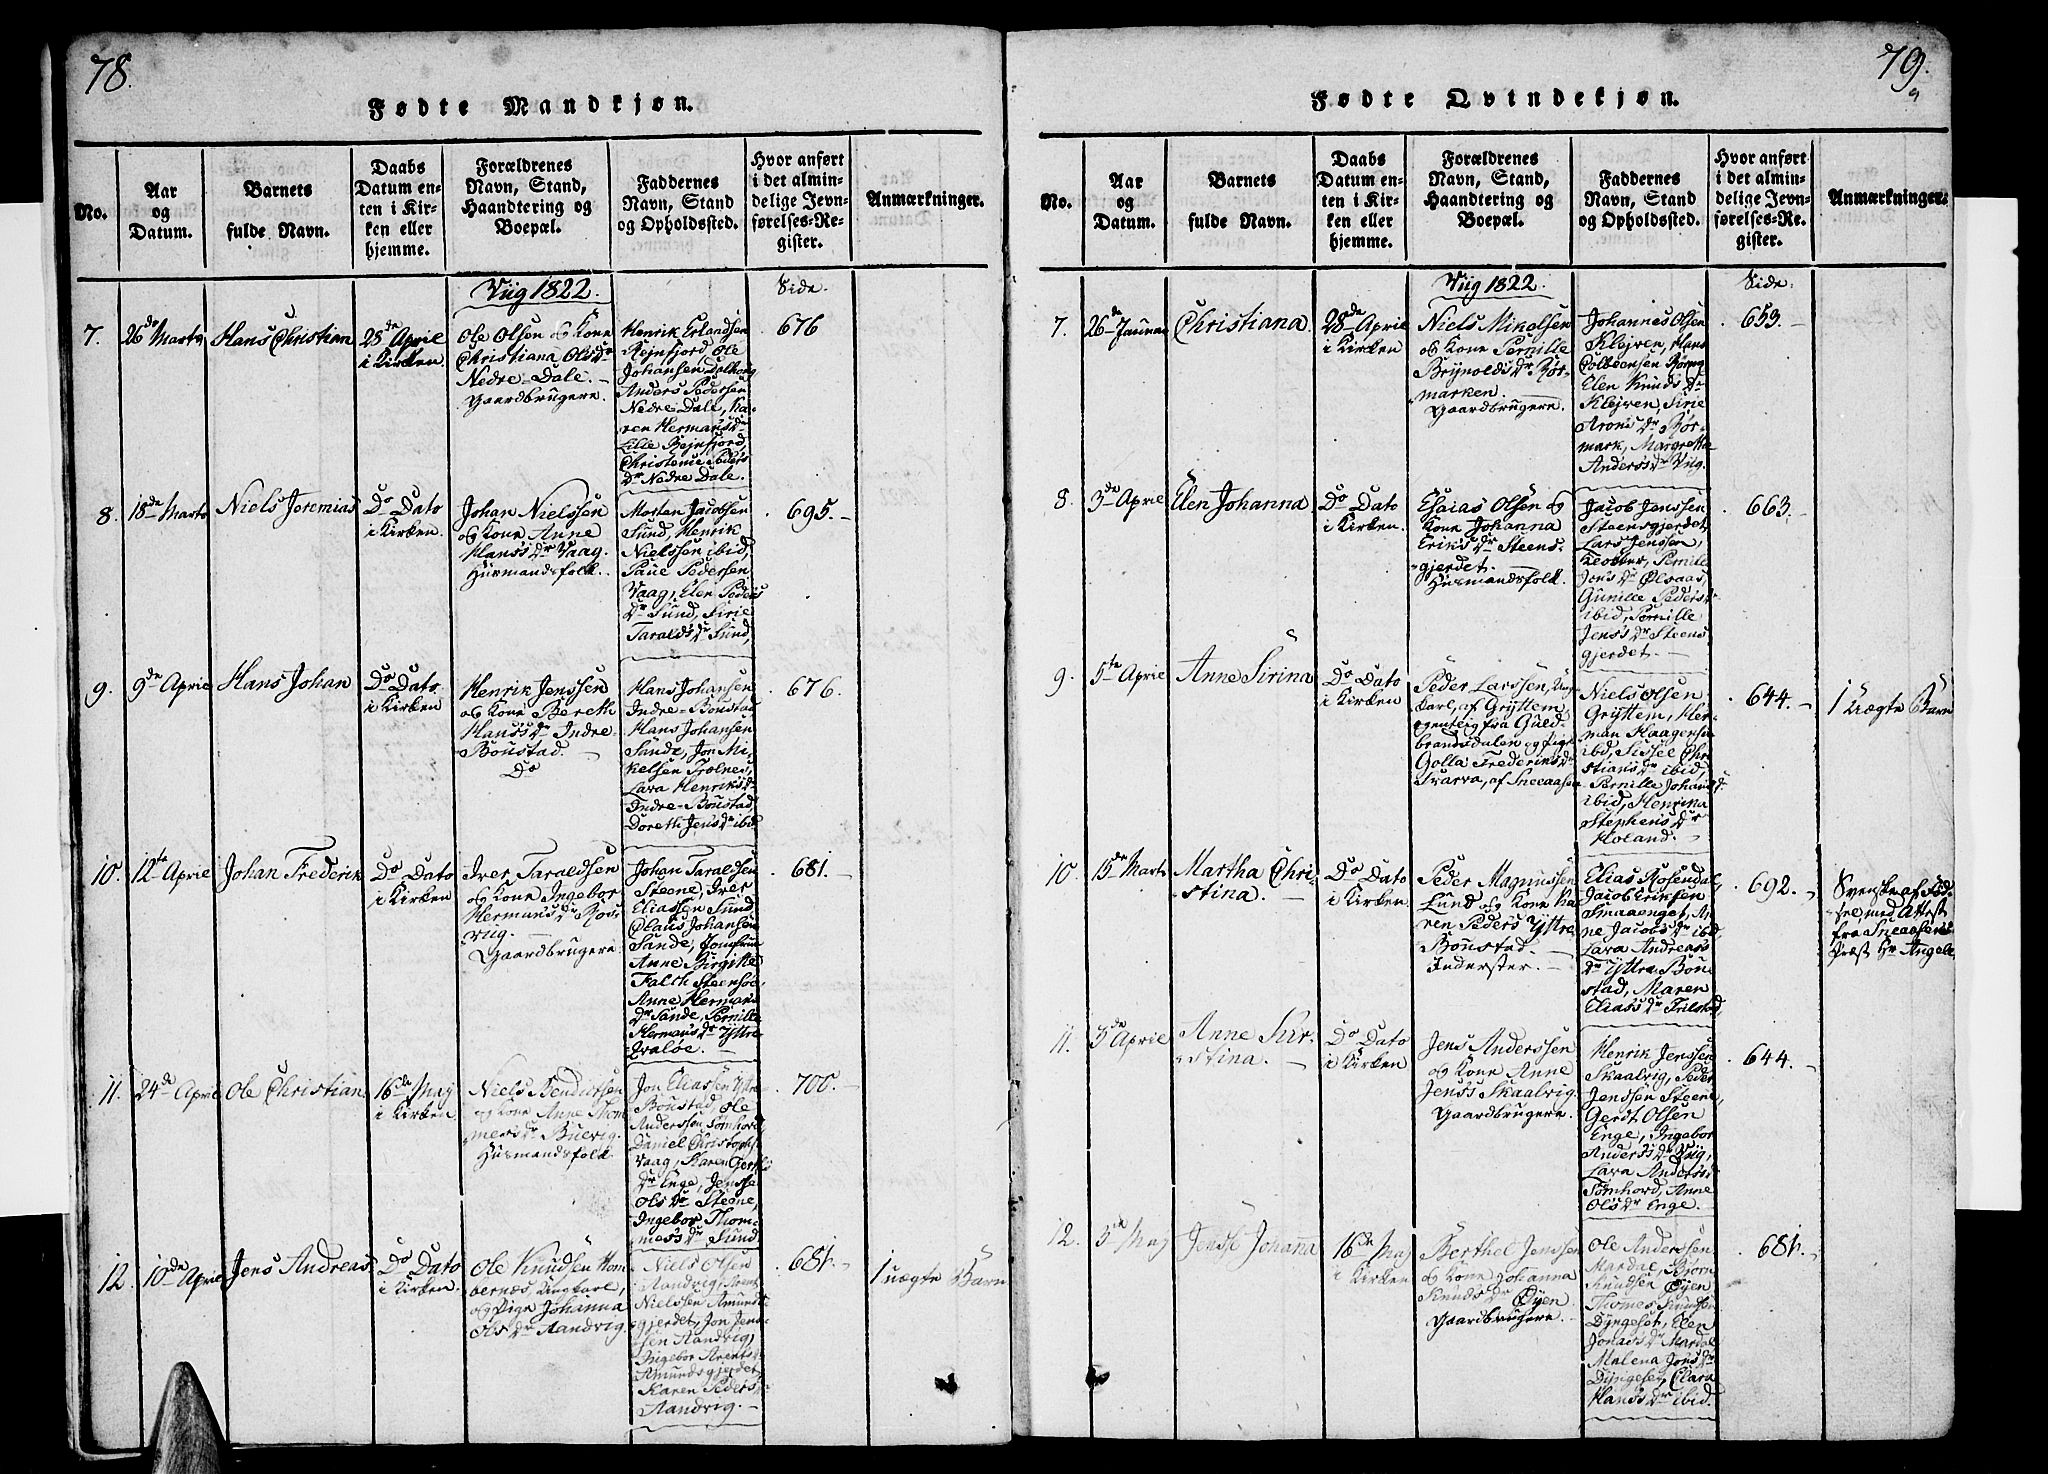 78.
Fødte Mandkjøn.
No.
Aar
og
Datum.
Barnets
fulde Navn.
Daabs
Datum en-
ten i Kir-
ken eller
hjemme.
Forældrenes
Navn, Stand,
Haandtering og
Boepæl.
Faddernes
Navn, Stand
og Opholdssted.
Hvor anført
i det almin-
delige Jevn-
førelses-Re-
gister.
Anmærkninger.
Viig 1822.
Side.
7.
26de Marts
Hans Christian
28de April
i Kirken
Ole Olsen og Kone
Christiana Olsdr
Nedre-Dale.
Gaardbrugere.
Henrik Erlandsen
Rejnfjord, Ole
Johansen Dalbong
Anders Pedersen
Nedre Dale, Ka-
ren Hermansdr
Lille Rejnfjord,
Christense Peders
dr Nedre Dale.
676
8.
18de Marts
Niels Jeremias
Do Dato
i Kirken.
Johan Nielssen
og Kone Anne
Hans's dr Vaag.
Huusmandsfolk.
Morten Jacobsen
Sund, Henrik
Nielssen ibid,
Paul Pedersen
Vaag, Elen Peders
dr Sund, Sirie
Taralds dr Sund,
695.
9.
9de April
Hans Johan
Do Dato
i Kirken
Henrik Jenssen
og Kone Bereth
Hans's dr Indre
Boustad.
Do
Hans Johansen
Indre-Boustad
Hans Johansen
Sande, Jon Mi-
kelsen Trolnes,
Lava Henriksd
Indre-Boustad,
Doreth Jens dr ibid
676.
10.
12te April
Johan Frederik
Do Dato
i Kirken
Iver Taraldsen
og Kone Ingebor
Hermans dr Ros
viig.
Gaardbrugere
Johan Taraldsen
Steene, Iver
Eliassen Sund
Claus Johansen
Sande, Jomfrue
Anne Birgitte
Falch Steensøe
Anne Herman
dr Sande, Pernille
Hermans dr Yttre
Qvaløe.
681.
11.
24de April
Ole Christian
16de May
i Kirken
Niels Bendictsen
og Kone Anne Thom
mes's dr Buevig.
Huusmandsfolk
Jon Eliassen Yttre
Boustad, Ole
Anderssen Somhord,
Daniel Christophs
Vaag, Karen Gerts
dr Enge, Jensse
Ols dr Steene,
Ingebor Thom-
mes's dr Sund
700.
12.
10de April
Jens Andreas
Do Dato
i Kirken.
Ole Knudsen Hom
bernæs, Ungkarl,
og Pige Johanna
Ols dr Aandvig
Niels Olsen
Aandvig, Arent
Nielssen Amunds
gjerdet, Jon Jens-
sen Aandvig,
Ingebor Arents
Amundsgjerdet,
Karen Peders
Aandvig.
681.
1 uægte Barn
79.
Fødte Qvindekjøn.
No.
Aar
og
Datum.
Barnets
fulde Navn.
Daabs
Datum en-
ten i Kir-
ken eller
hjemme.
Forældrenes
Navn, Stand,
Haandtering og
Boepæl.
Faddernes
Navn, Stand
og Opholdssted.
Hvor anført
i det almin-
delige Jevn-
førelses-Re-
gister.
Anmærkninger.
Viig 1822.
Side.
7.
26de Januar
Christiana
28de April
i Kirken
Niels Mikelsen
og Kone Pernille
Brynolds dr Rør-
marken.
Gaardbrugere.
Johannes Olsen
Klejven, Hans
Colbeensen
Elen Knuds dr
Klejven, Sirie
Arons dr Rør-
mark, Margrethe
Anders's dr Viig.
653.
8.
3de April
Elen Johanna
Do Dato
i Kirken.
Esaias Olsen og
Kone Johanna
Eriks dr Steens-
gjerdet.
Huusmandsfolk.
Jacob Jenssen
Steensgjerdet
Lars Jenssen,
Kloster, Pernille
Jons dr Ølsaas,
Gunille Peders
ibid, Pernille
Jens's dr Steens
gjerdet.
663.
9.
5te April
Anne Sirina
Do Dato
i Kirken
Peder Larssen, Ung
karl, af Gryttem
egentlig fra Guld-
brandsdalen og Pige
Golla Frederiks dr
Svarva, af Sneeaasen
Niels Olsen
Gryttem, Her-
man Haagensen
ibid, Sissel Chri-
stians dr ibid,
Pernille Johans d
ibid, Henrina
Stephens dr
Holand.
644.
1 uægte Barn
10.
15de Marts
Martha Chri-
stina.
Do Dato
i Kirken
Peder Magnussen
Lund og Kone Ka
ren Peders Yttre
Boustad.
Inderster.
Elias Rosendal,
Jacob Eriksen
Smaaenget, An
ne Jacobs dr ibid
Lava Andreas's
dr Yttre Bou
stad, Maren
Elias's dr Trilstad
692.
Svenske af Fød-
sel med Attest
fra Sneaasens
Præst Hr Angell
11.
5de April
Anne Kir-
stina.
Do Dato
i Kirken
Jens Anderssen
og Kone Anne
Jens's Skaalvig.
Gaardbrugere.
Henrik Jenssen
Skaalvig, Peder
Jenssen Steene,
Gerdt Olsen
Enge, Ingebor
Anders's dr Viig,
Lava Anders's
Somhord, Anne
Ols dr Enge.
644.
12.
5te May
Jensse Johanna
16de May
i Kirken
Berthel Jenssen
og Kone Johanna
Knuds dr Øyen
Gaardbrugere.
Ole Anderssen
Mardal, Bjørn
Knudsen Øyen
Thomes Knudsen
Dyngeset, Elen
Jonas's dr Mardal
Malena Jons dr
Dyngeset, Clara
Hans's dr ibid.
681.